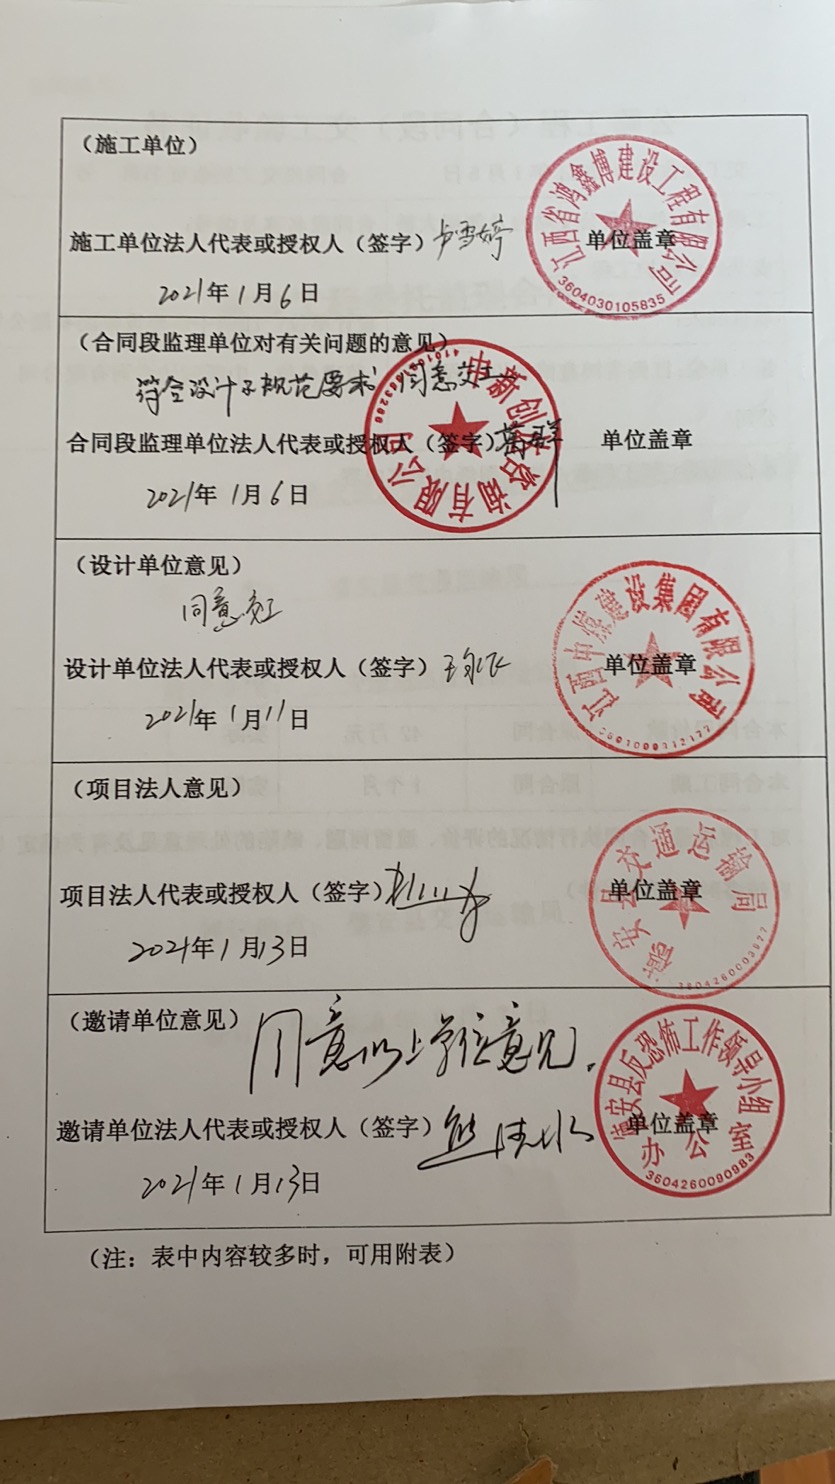 （施工单位）
江西省鸿鑫博建设工程有限公司
施工单位法人代表或授权人（签字）卢雪婷 单位盖章
3604030105835
2021年1月6日
（合同段监理单位对有关问题的意见）
符合设计及规范要求 同意交工
中新创达咨询有限公司
合同段监理单位法人代表或授权人（签字） 单位盖章
2021年1月6日
（设计单位意见）
同意交工
江西中煤建设集团有限公司
设计单位法人代表或授权人（签字） 单位盖章
2021年1月11日
（项目法人意见）
德安县交通运输局
项目法人代表或授权人（签字） 单位盖章
2021年1月13日
3604260003927
（邀请单位意见）
同意以上单位意见.
德安县反恐怖工作领导小组
邀请单位法人代表或授权人（签字） 单位盖章
办公室
3604260090983
2021年1月13日
（注：表中内容较多时，可用附表）